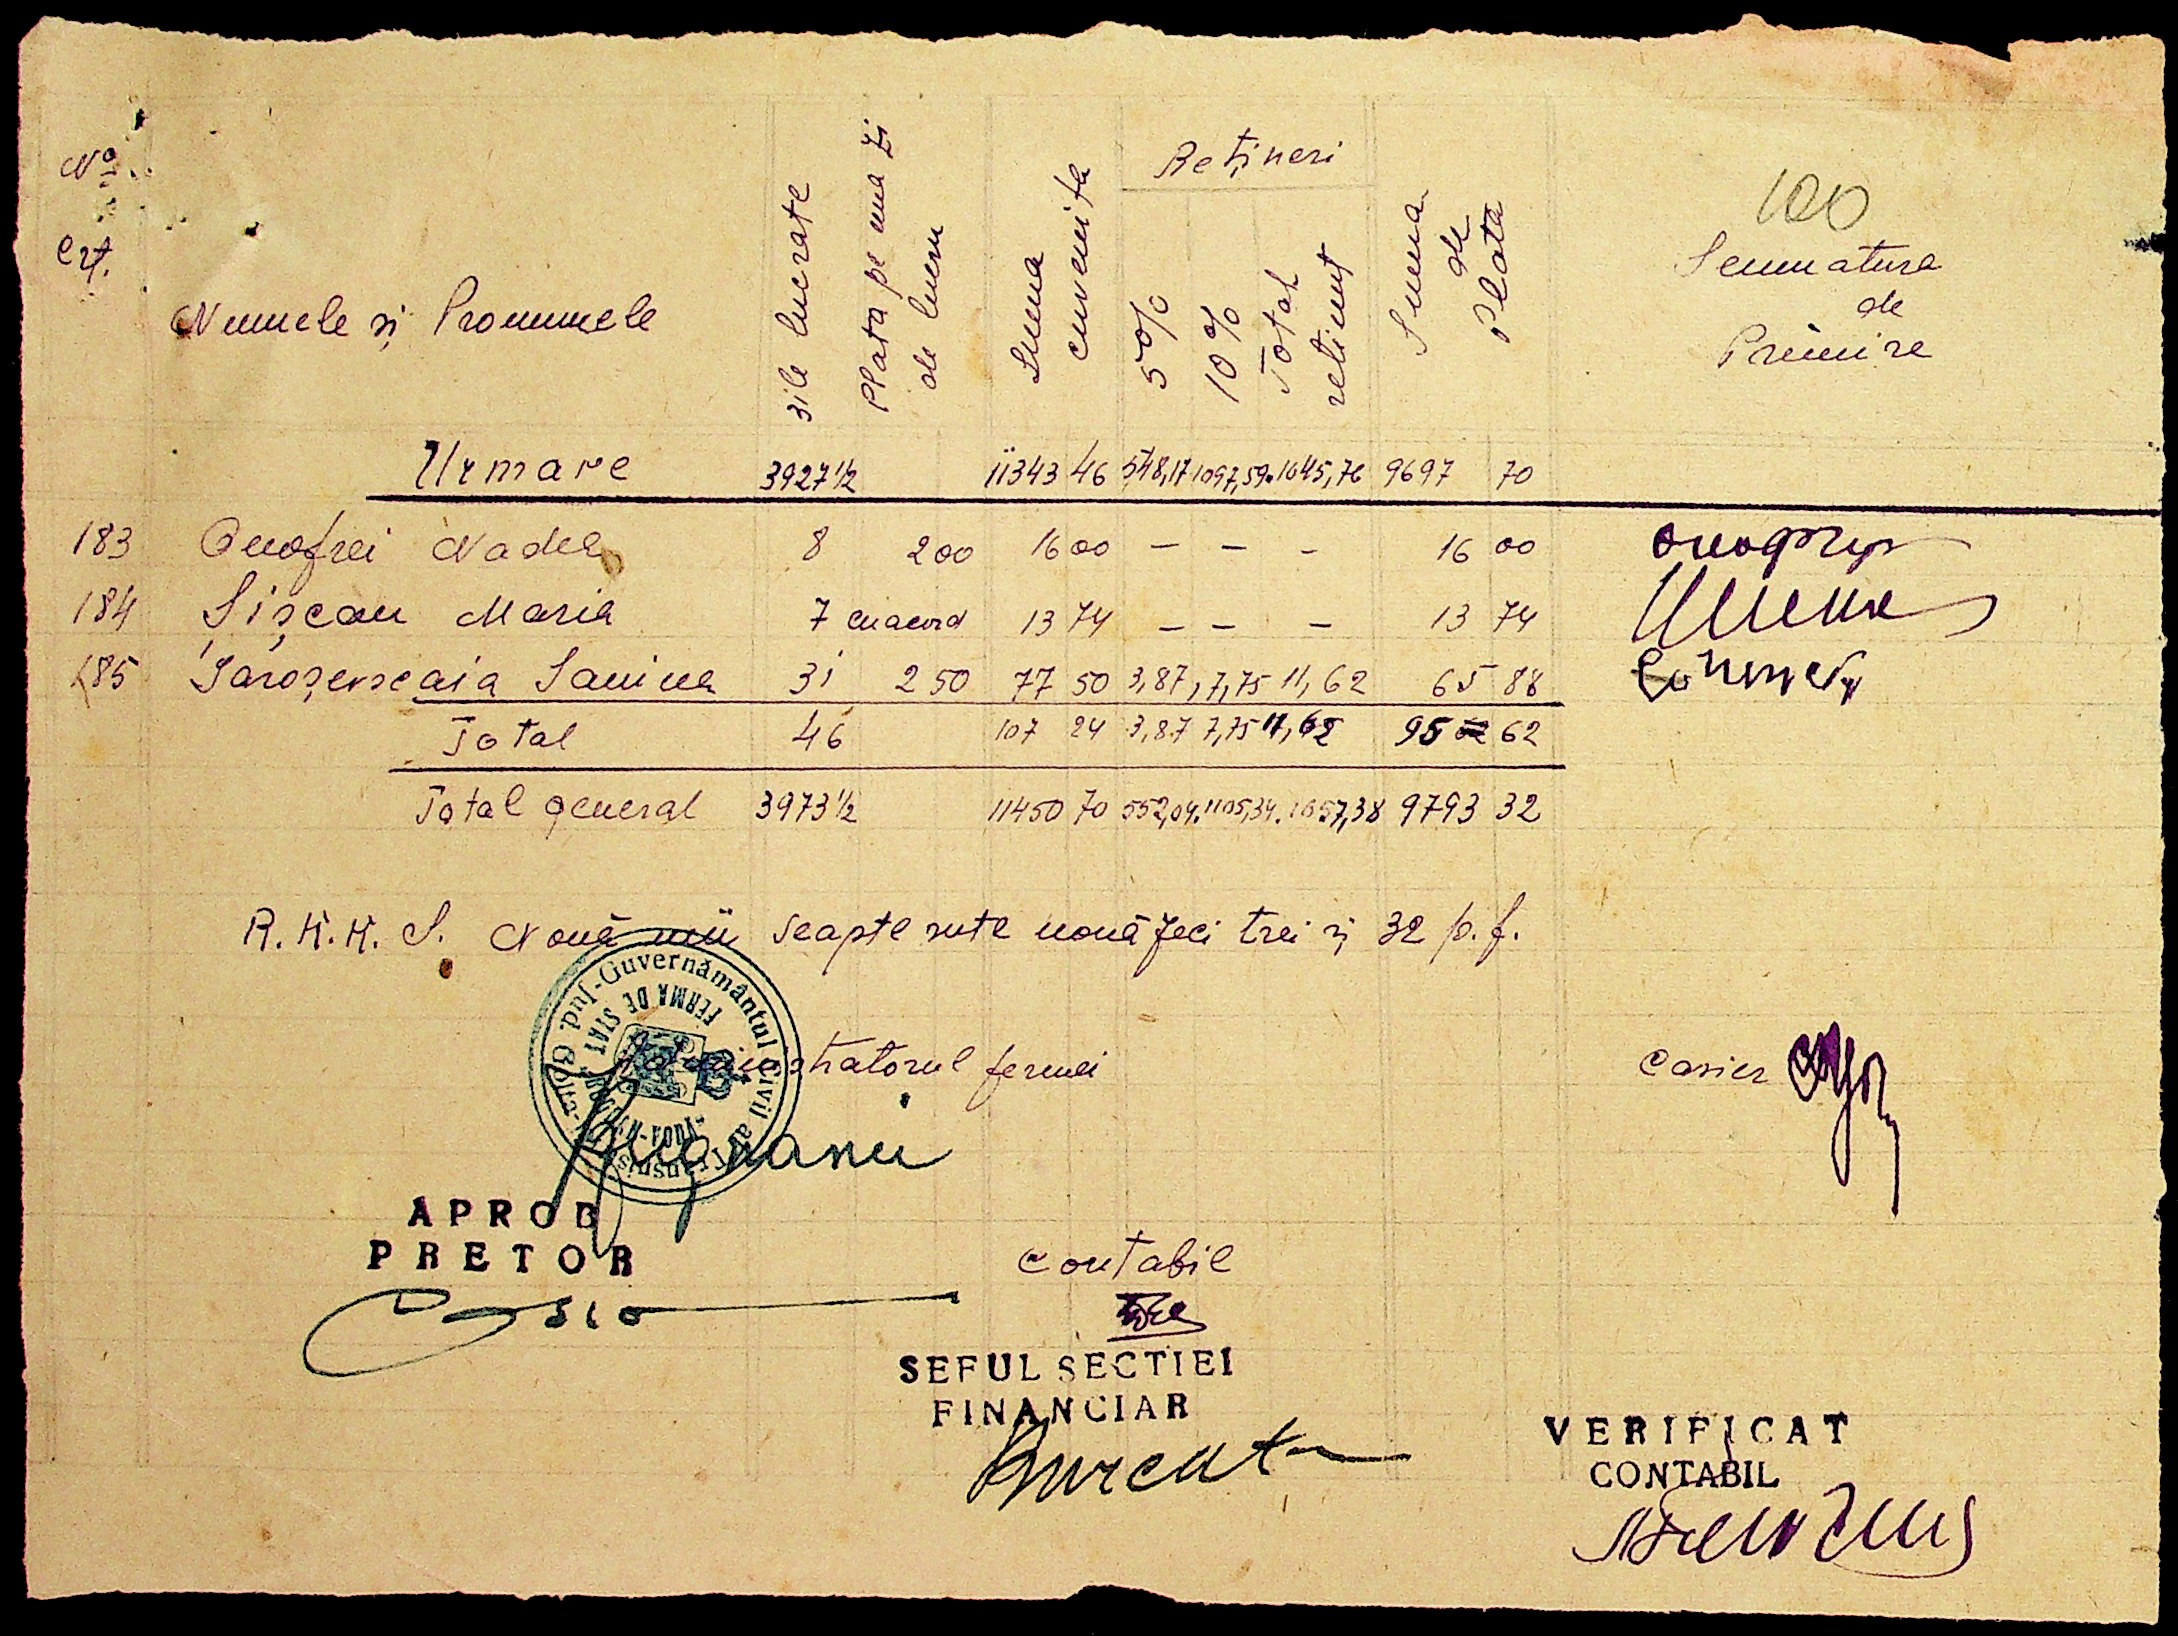 100
No
Crt.
Numele și Pronumele
zile lucrate
Plata pe una zi de lucru
Suma cuvenita
Rețineri
5%
10%
Total reținut
Suma de Plata
Semnatura
de
Primire
Urmare 3927 1/2 11343 46 548,17 1097,59 1645,76 9697 70
183 Onofrei Nadea 8 2 00 16 00 — — — 16 00
184 Sișcan Maria 7 cu acord 13 74 — — — 13 74
185 Iaroșevscaia Ianina 31 2 50 77 50 3,87 7,75 11,62 65 88
Total 46 107 24 3,87 7,75 11,62 95 62
Total general 3973 1/2 11450 70 552,04 1105,34 1657,38 9793 32
R.K.K. S. Nouă mii seapte sute nouă zeci trei și 32 p.f.
Guvernământul Civil al Transnistriei
FERMA DE STAT
Administratorul fermei
Casier
APROB
PRETOR
Contabil
SEFUL SECTIEI
FINANCIAR
VERIFICAT
CONTABIL